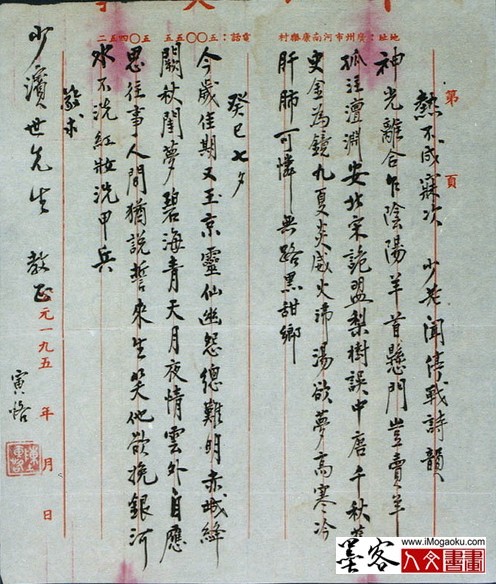 地址:廣州市河南康樂村 電話:五〇〇五五 五〇四五二
第 頁
熱不成寐次 少老聞停戰詩韻
神光離合乍陰陽羊首懸門豈賣羊
孤注澶淵安北宋詭盟梨樹誤中唐千秋
史金為鏡九夏炎威火沸湯欲夢高寒冷
肝肺可憐無路黑甜鄉
癸巳七夕
今歲佳期又玉京靈仙幽怨總難明赤城絳
闕秋閨夢碧海青天月夜情雲外自應
思往事人間猶說誓來生笑他欲挽銀河
水不洗紅妝洗甲兵
敬求
少濱世先生 教正
元一九五 年 月 日
寅恪
墨客人文書畫
www.iMogaoku.com